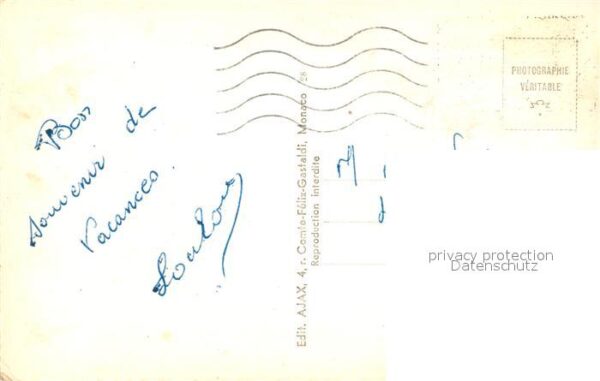 Bon
souvenir de
Vacances.
Loulou
Edit. AJAX, 4, r. Comte-Félix-Gastaldi, Monaco
Reproduction interdite
PHOTOGRAPHIE
VÉRITABLE
privacy protection
Datenschutz